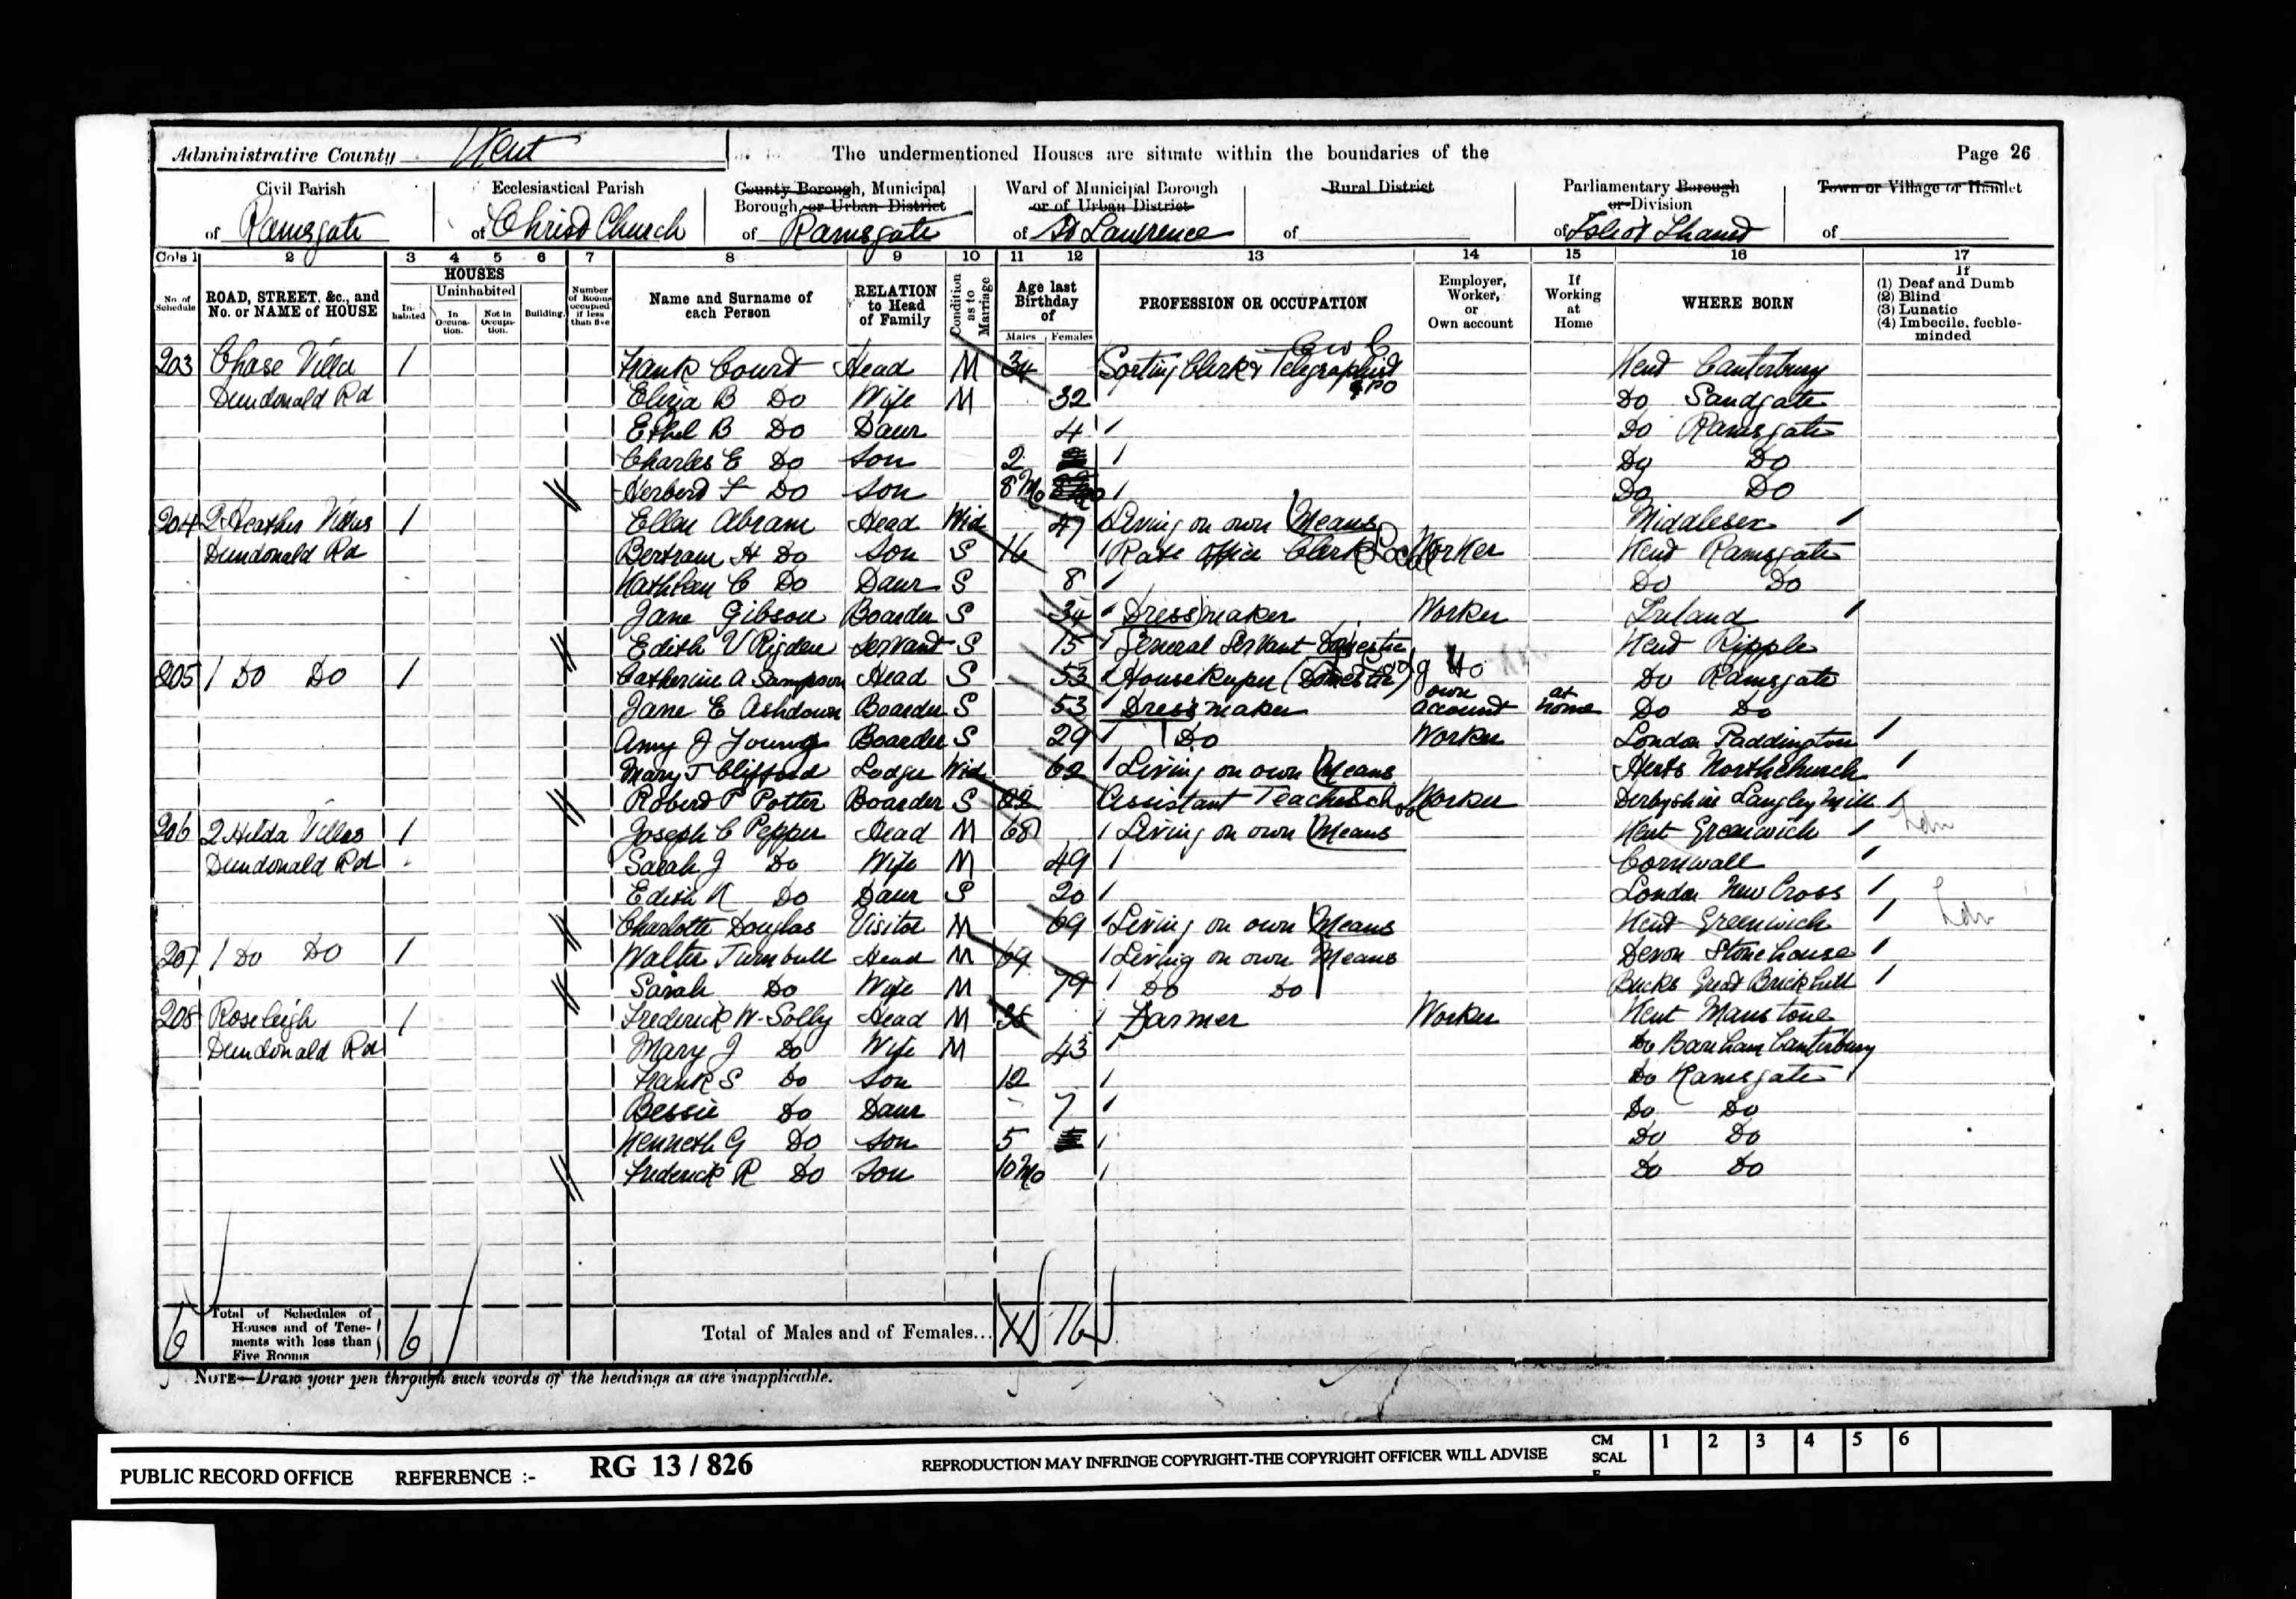 Administrative County Kent The undermentioned Houses are situate within the boundaries of the Page 26
Civil Parish Ecclesiastical Parish County Borough, Municipal Ward of Municipal Borough Rural District Parliamentary Borough Town or Village or Hamlet
Borough, or Urban District or of Urban District or Division
of Ramsgate of Christ Church of Ramsgate of St Lawrence of of Isle of Thanet of
Cols 1 2 3 4 5 6 7 8 9 10 11 12 13 14 15 16 17
No. of Schedule ROAD, STREET, &c., and No. or NAME of HOUSE HOUSES Inhabited Uninhabited In Occupation. Not in Occupation. Building. Number of Rooms occupied if less than five Name and Surname of each Person RELATION to Head of Family Condition as to Marriage Age last Birthday of Males Females PROFESSION OR OCCUPATION Employer, Worker, or Own account If Working at Home WHERE BORN If (1) Deaf and Dumb (2) Blind (3) Lunatic (4) Imbecile, feeble-minded
203 Chase Villa 1 Frank Court Head M 34 Sorting Clerk & Telegraphist GPO Kent Canterbury
Dundonald Rd Eliza B Do Wife M 32 Do Sandgate
Ethel B Do Daur 4 Do Ramsgate
Charles E Do Son 2 Do Do
Herbert F Do Son 8 Mo Do Do
204 2 Heather Villas 1 Ellen Abram Head Wid 47 Living on own Means Middlesex
Dundonald Rd Bertram H Do Son S 16 Rate Office Clerk Worker Kent Ramsgate
Kathleen C Do Daur S 8 Do Do
Jane Gibson Boarder S 34 Dressmaker Worker Ireland
Edith V Rigden Servant S 15 General Servant Domestic Kent Ripple
205 1 Do Do 1 Catherine A Sampson Head S 53 Housekeeper (Domestic) Do Ramsgate
Jane E Ashdown Boarder S 53 Dressmaker own account at home Do Do
Amy J Young Boarder S 29 Do Worker London Paddington
Mary J Clifford Lodger Wid 62 Living on own Means Herts Northchurch
Robert P Potter Boarder S 22 Assistant Teacher School Worker Derbyshire Langley Mill
206 2 Hilda Villas 1 Joseph C Pepper Head M 68 Living on own Means Kent Greenwich Ldn
Dundonald Rd Sarah J Do Wife M 49 Cornwall
Edith K Do Daur S 20 London New Cross
Charlotte Douglas Visitor M 69 Living on own Means Kent Greenwich Ldn
207 1 Do Do 1 Walter Turnbull Head M 69 Living on own Means Devon Stonehouse
Sarah Do Wife M 79 Do Do Bucks Great Brickhill
208 Roseleigh 1 Frederick W Solly Head M 38 Farmer Worker Kent Manstone
Dundonald Rd Mary J Do Wife M 43 Do Barham Canterbury
Frank S Do Son 12 Do Ramsgate
Bessie Do Daur 7 Do Do
Kenneth G Do Son 5 Do Do
Frederick R Do Son 10 Mo Do Do
6 Total of Schedules of Houses and of Tenements with less than Five Rooms 6 Total of Males and of Females... 16
NOTE—Draw your pen through such words of the headings as are inapplicable.
PUBLIC RECORD OFFICE REFERENCE :- RG 13 / 826 REPRODUCTION MAY INFRINGE COPYRIGHT-THE COPYRIGHT OFFICER WILL ADVISE CM SCALE 1 2 3 4 5 6